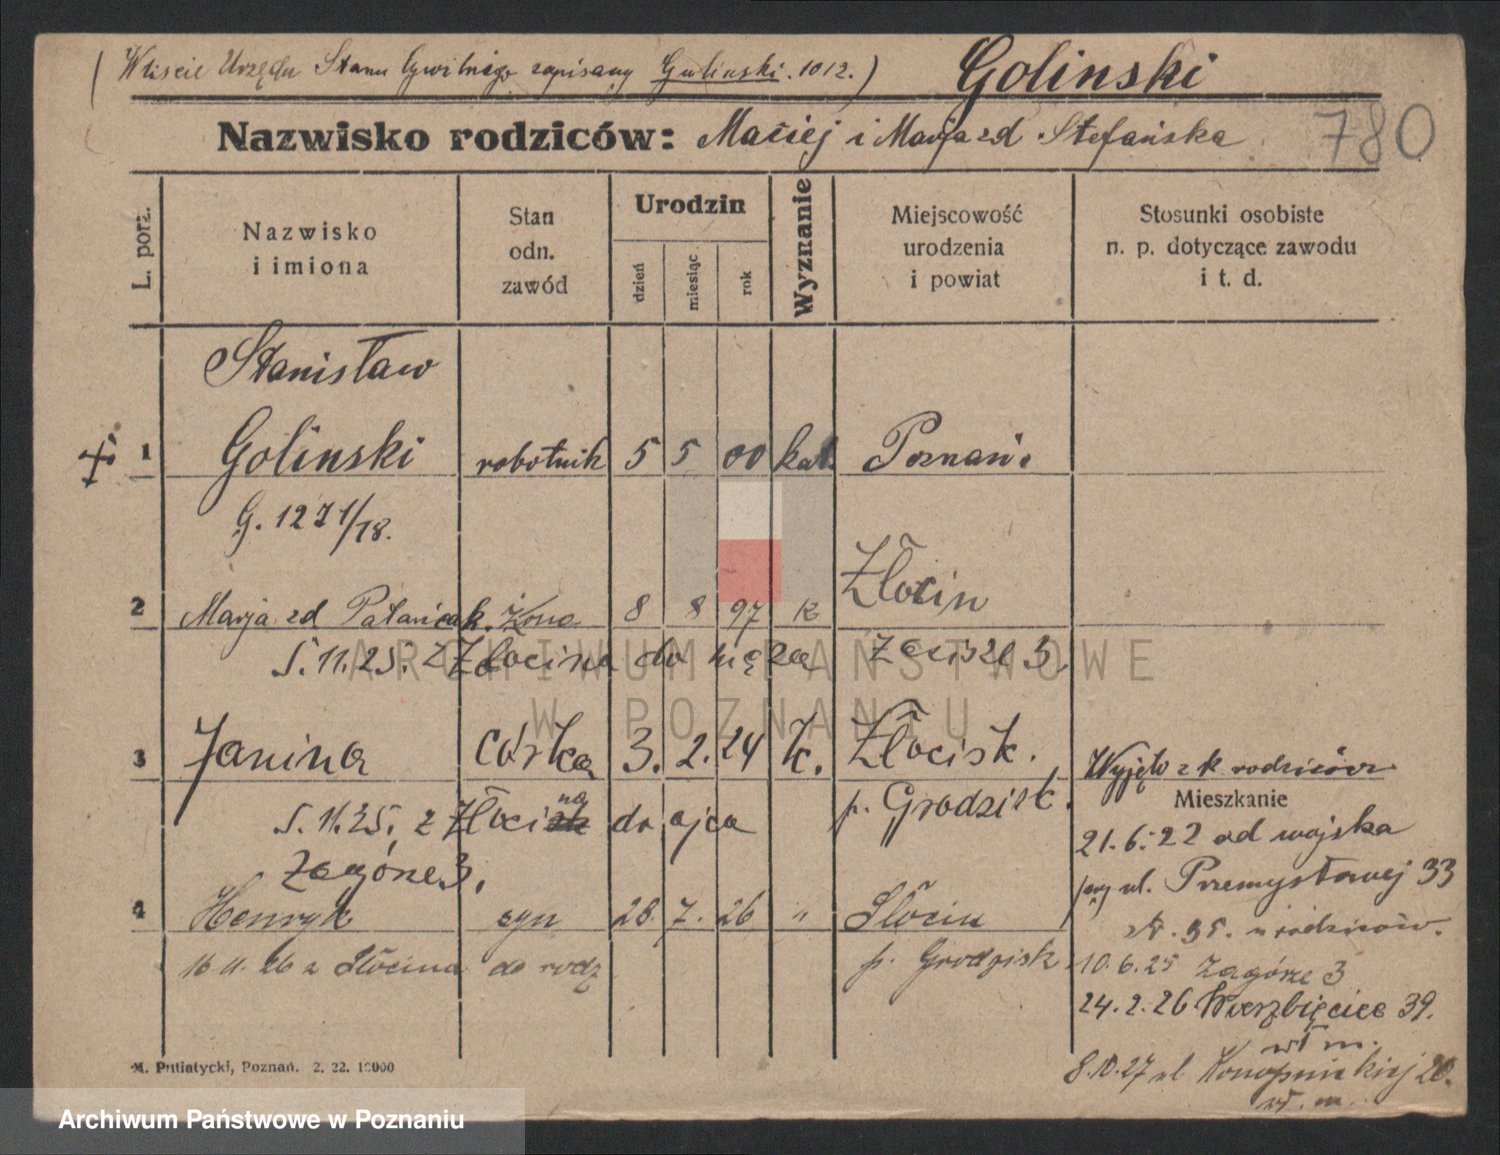 (W liście Urzędu Stanu Cywilnego zapisany Gulinski. 1012.) Golinski
Nazwisko rodziców: Maciej i Marja zd Stefańska 780
L. porz.
Nazwisko
i imiona
Stan
odn.
zawód
Urodzin
dzień
miesiąc
rok
Wyznanie
Miejscowość
urodzenia
i powiat
Stosunki osobiste
n. p. dotyczące zawodu
i t. d.
Stanisław
1 Golinski robotnik 5 5 00 kat. Poznań.
G. 1271/18.
2 Marja zd żona 8 8 97 k Złocin
5.11.25. z Złocina do męża Zacisze 3
3 Janina córka 3. 2. 24 k. Złocisk.
p. Grodzisk.
5.11.25. z Złocina do ojca
Zagórze 3.
4 Henryk syn 28 7. 26 " Słocin
16 11. 26 z Słocina do rodz p. Grodzisk
Wyjęto z k rodziców
Mieszkanie
21.6.22 od wojska
przy ul. Przemysłowej 33
st. 35. u rodziców.
10.6.25 Zagórze 3
24.2.26 Wierzbięcice 39.
wł m.
8.10.27 ul Konopnickiej 20.
wł. m.
M. Putiatycki, Poznań. 2. 22. 10000
ARCHIWUM PAŃSTWOWE
W POZNANIU
Archiwum Państwowe w Poznaniu